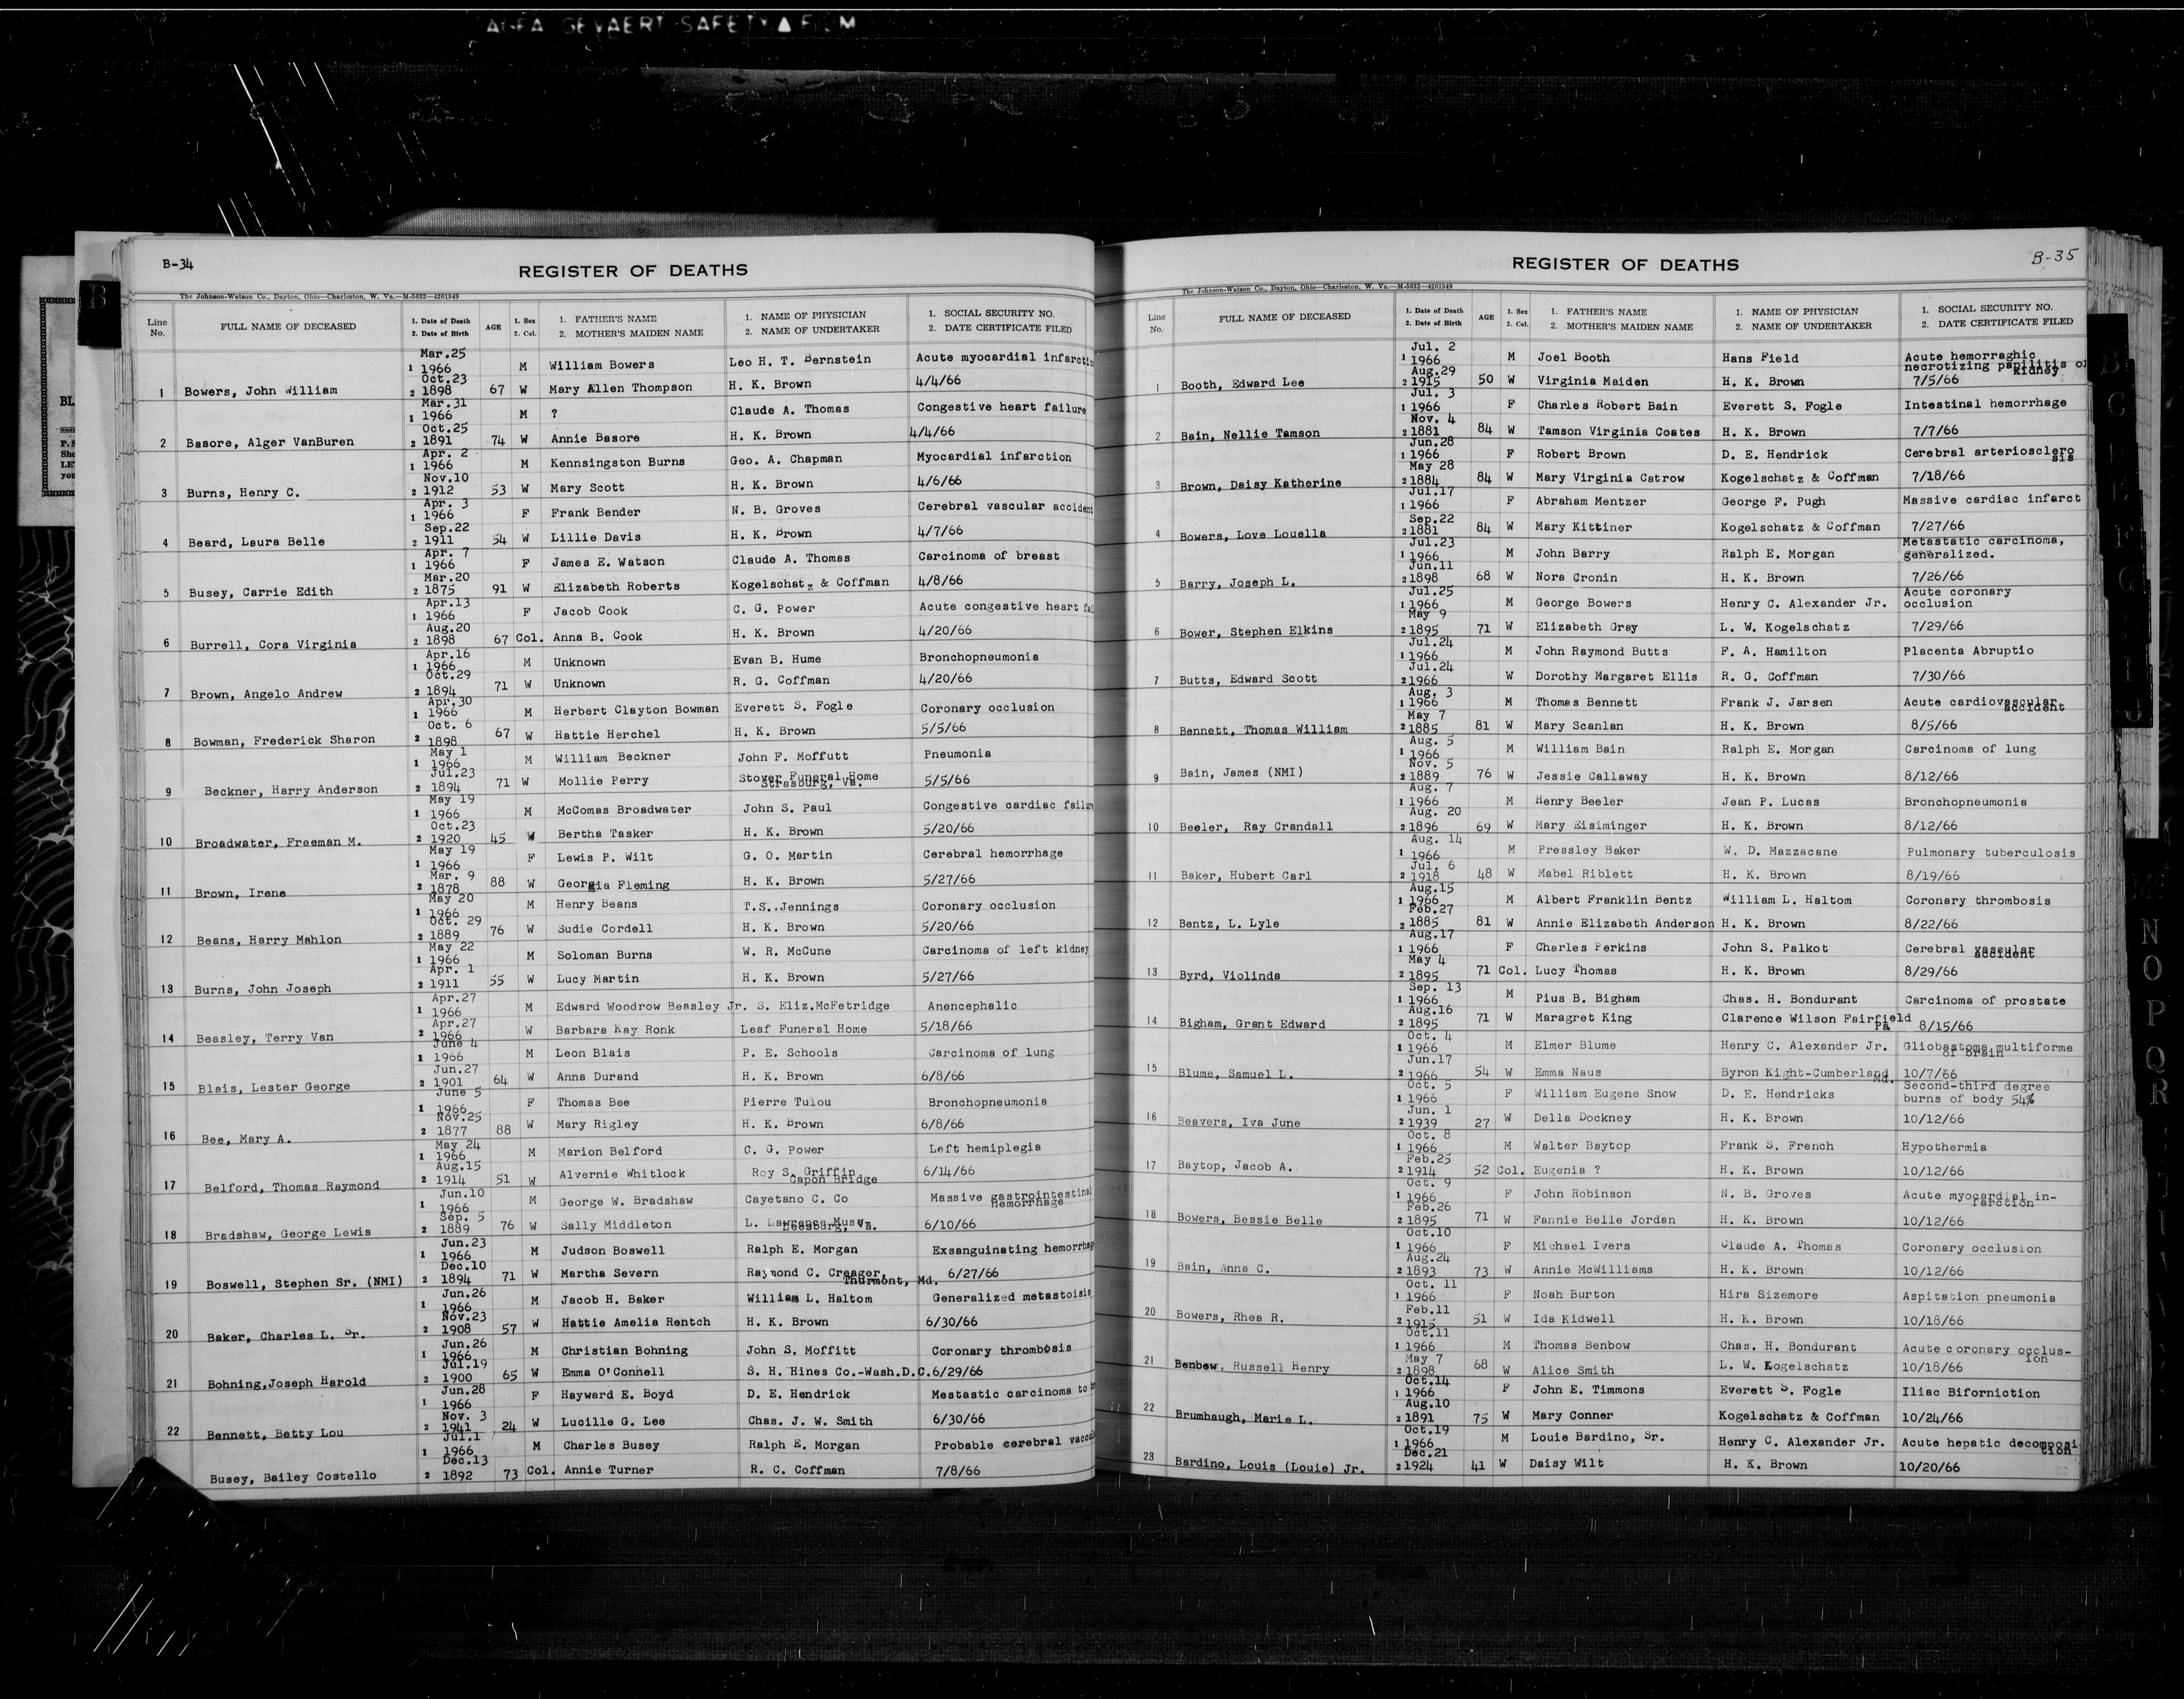 AGFA GEVAERT SAFETY ▲ FILM
B-34
REGISTER OF DEATHS
The Johnson-Watson Co., Dayton, Ohio—Charleston, W. Va.—M-5632—4201949
Line No. FULL NAME OF DECEASED 1. Date of Death 2. Date of Birth AGE 1. Sex 2. Col. 1. FATHER'S NAME 2. MOTHER'S MAIDEN NAME 1. NAME OF PHYSICIAN 2. NAME OF UNDERTAKER 1. SOCIAL SECURITY NO. 2. DATE CERTIFICATE FILED
1 Mar.25 1966 M William Bowers Leo H. T. Bernstein Acute myocardial infarction
1 Bowers, John William 2 Oct.23 1898 67 W Mary Allen Thompson H. K. Brown 4/4/66
1 Mar.31 1966 M ? Claude A. Thomas Congestive heart failure
2 Basore, Alger VanBuren 2 Oct.25 1891 74 W Annie Basore H. K. Brown 4/4/66
1 Apr. 2 1966 M Kennsingston Burns Geo. A. Chapman Myocardial infarction
3 Burns, Henry C. 2 Nov.10 1912 53 W Mary Scott H. K. Brown 4/6/66
1 Apr. 3 1966 F Frank Bender N. B. Groves Cerebral vascular accident
4 Beard, Laura Belle 2 Sep.22 1911 54 W Lillie Davis H. K. Brown 4/7/66
1 Apr. 7 1966 F James E. Watson Claude A. Thomas Carcinoma of breast
5 Busey, Carrie Edith 2 Mar.20 1875 91 W Elizabeth Roberts Kogelschatz & Coffman 4/8/66
1 Apr.13 1966 F Jacob Cook C. G. Power Acute congestive heart fai
6 Burrell, Cora Virginia 2 Aug.20 1898 67 Col. Anna B. Cook H. K. Brown 4/20/66
1 Apr.16 1966 M Unknown Evan B. Hume Bronchopneumonia
7 Brown, Angelo Andrew 2 Oct.29 1894 71 W Unknown R. G. Coffman 4/20/66
1 Apr.30 1966 M Herbert Clayton Bowman Everett S. Fogle Coronary occlusion
8 Bowman, Frederick Sharon 2 Oct. 6 1898 67 W Hattie Herchel H. K. Brown 5/5/66
1 May 1 1966 M William Beckner John F. Moffutt Pneumonia
9 Beckner, Harry Anderson 2 Jul.23 1894 71 W Mollie Perry Stover Funeral Home Strasburg, Va. 5/5/66
1 May 19 1966 M McComas Broadwater John S. Paul Congestive cardiac failur
10 Broadwater, Freeman M. 2 Oct.23 1920 45 W Bertha Tasker H. K. Brown 5/20/66
1 May 19 1966 F Lewis P. Wilt G. O. Martin Cerebral hemorrhage
11 Brown, Irene 2 Mar. 9 1878 88 W Georgia Fleming H. K. Brown 5/27/66
1 May 20 1966 M Henry Beans T.S..Jennings Coronary occlusion
12 Beans, Harry Mahlon 2 Oct. 29 1889 76 W Sudie Cordell H. K. Brown 5/20/66
1 May 22 1966 M Soloman Burns W. R. McCune Carcinoma of left kidney
13 Burns, John Joseph 2 Apr. 1 1911 55 W Lucy Martin H. K. Brown 5/27/66
1 Apr.27 1966 M Edward Woodrow Beasley Jr. S. Eliz.McFetridge Anencephalic
14 Beasley, Terry Van 2 Apr.27 1966 W Barbara Kay Ronk Leaf Funeral Home 5/18/66
1 June 4 1966 M Leon Blais P. E. Schools Carcinoma of lung
15 Blais, Lester George 2 Jun.27 1901 64 W Anna Durand H. K. Brown 6/8/66
1 June 5 1966 F Thomas Bee Pierre Tulou Bronchopneumonia
16 Bee, Mary A. 2 Nov.25 1877 88 W Mary Rigley H. K. Brown 6/8/66
1 May 24 1966 M Marion Belford C. G. Power Left hemiplegia
17 Belford, Thomas Raymond 2 Aug.15 1914 51 W Alvernie Whitlock Roy S. Griffin Capon Bridge 6/14/66
1 Jun.10 1966 M George W. Bradshaw Cayetano C. Co Massive gastrointestinal Hemorrhage
18 Bradshaw, George Lewis 2 Sep. 5 1889 76 W Sally Middleton L. Lawrence Muse, Leesburg, Va. 6/10/66
1 Jun.23 1966 M Judson Boswell Ralph E. Morgan Exsanguinating hemorrhage
19 Boswell, Stephen Sr. (NMI) 2 Dec.10 1894 71 W Martha Severn Raymond C. Creager, Thurmont, Md. 6/27/66
1 Jun.26 1966 M Jacob H. Baker William L. Haltom Generalized metastoisis
20 Baker, Charles L. Sr. 2 Nov.23 1908 57 W Hattie Amelia Rentch H. K. Brown 6/30/66
1 Jun.26 1966 M Christian Bohning John S. Moffitt Coronary thrombosis
21 Bohning,Joseph Harold 2 Jul.19 1900 65 W Emma O'Connell S. H. Hines Co.-Wash.D.C. 6/29/66
1 Jun.28 1966 F Hayward E. Boyd D. E. Hendrick Mestastic carcinoma to
22 Bennett, Betty Lou 2 Nov. 3 1941 24 W Lucille G. Lee Chas. J. W. Smith 6/30/66
1 Jul.1 1966 M Charles Busey Ralph E. Morgan Probable cerebral
Busey, Bailey Costello 2 Dec.13 1892 73 Col. Annie Turner R. C. Coffman 7/8/66
B-35
REGISTER OF DEATHS
The Johnson-Watson Co., Dayton, Ohio—Charleston, W. Va.—M-5632—4201949
Line No. FULL NAME OF DECEASED 1. Date of Death 2. Date of Birth AGE 1. Sex 2. Col. 1. FATHER'S NAME 2. MOTHER'S MAIDEN NAME 1. NAME OF PHYSICIAN 2. NAME OF UNDERTAKER 1. SOCIAL SECURITY NO. 2. DATE CERTIFICATE FILED
1 Jul. 2 1966 M Joel Booth Hans Field Acute hemorraghic necrotizing papilitis of kidney
1 Booth, Edward Lee 2 Aug.29 1915 50 W Virginia Maiden H. K. Brown 7/5/66
1 Jul. 3 1966 F Charles Robert Bain Everett S. Fogle Intestinal hemorrhage
2 Bain, Nellie Tamson 2 Nov. 4 1881 84 W Tamson Virginia Coates H. K. Brown 7/7/66
1 Jun.28 1966 F Robert Brown D. E. Hendrick Cerebral arteriosclerosis
3 Brown, Daisy Katherine 2 May 28 1884 84 W Mary Virginia Catrow Kogelschatz & Coffman 7/18/66
1 Jul.17 1966 F Abraham Mentzer George F. Pugh Massive cardiac infarct
4 Bowers, Love Louella 2 Sep.22 1881 84 W Mary Kittiner Kogelschatz & Coffman 7/27/66
1 Jul.23 1966 M John Barry Ralph E. Morgan Metastatic carcinoma, generalized.
5 Barry, Joseph L. 2 Jun.11 1898 68 W Nora Cronin H. K. Brown 7/26/66
1 Jul.25 1966 M George Bowers Henry C. Alexander Jr. Acute coronary occlusion
6 Bower, Stephen Elkins 2 May 9 1895 71 W Elizabeth Gray L. W. Kogelschatz 7/29/66
1 Jul.24 1966 M John Raymond Butts F. A. Hamilton Placenta Abruptio
7 Butts, Edward Scott 2 Jul.24 1966 W Dorothy Margaret Ellis R. G. Coffman 7/30/66
1 Aug. 3 1966 M Thomas Bennett Frank J. Jarsen Acute cardiovascular accident
8 Bennett, Thomas William 2 May 7 1885 81 W Mary Scanlan H. K. Brown 8/5/66
1 Aug. 5 1966 M William Bain Ralph E. Morgan Carcinoma of lung
9 Bain, James (NMI) 2 Nov. 5 1889 76 W Jessie Callaway H. K. Brown 8/12/66
1 Aug. 7 1966 M Henry Beeler Jean P. Lucas Bronchopneumonia
10 Beeler, Ray Crandall 2 Aug. 20 1896 69 W Mary Eisiminger H. K. Brown 8/12/66
1 Aug. 14 1966 M Pressley Baker W. D. Mazzacane Pulmonary tuberculosis
11 Baker, Hubert Carl 2 Jul. 6 1918 48 W Mabel Riblett H. K. Brown 8/19/66
1 Aug.15 1966 M Albert Franklin Bentz William L. Haltom Coronary thrombosis
12 Bentz, L. Lyle 2 Feb.27 1885 81 W Annie Elizabeth Anderson H. K. Brown 8/22/66
1 Aug.17 1966 F Charles Perkins John S. Palkot Cerebral vascular accident
13 Byrd, Violinda 2 May 4 1895 71 Col. Lucy Thomas H. K. Brown 8/29/66
1 Sep. 13 1966 M Pius B. Bigham Chas. H. Bondurant Carcinoma of prostate
14 Bigham, Grant Edward 2 Aug.16 1895 71 W Maragret King Clarence Wilson Fairfield Pa 8/15/66
1 Oct. 4 1966 M Elmer Blume Henry C. Alexander Jr. Glioblastoma multiforme of brain
15 Blume, Samuel L. 2 Jun.17 1966 54 W Emma Naus Byron Kight-Cumberland Md. 10/7/66
1 Oct. 5 1966 F William Eugene Snow D. E. Hendricks Second-third degree burns of body 54%
16 Beavers, Iva June 2 Jun. 1 1939 27 W Della Dockney H. K. Brown 10/12/66
1 Oct. 8 1966 M Walter Baytop Frank S. French Hypothermia
17 Baytop, Jacob A. 2 Feb.25 1914 52 Col. Eugenia ? H. K. Brown 10/12/66
1 Oct. 9 1966 F John Robinson N. B. Groves Acute myocardial in- farction
18 Bowers, Bessie Belle 2 Feb.26 1895 71 W Fannie Belle Jordan H. K. Brown 10/12/66
1 Oct.10 1966 F Michael Ivers Claude A. Thomas Coronary occlusion
19 Bain, Anna C. 2 Aug.24 1893 73 W Annie McWilliams H. K. Brown 10/12/66
1 Oct. 11 1966 F Noah Burton Hira Sizemore Aspitation pneumonia
20 Bowers, Rhea R. 2 Feb.11 1915 51 W Ida Kidwell H. K. Brown 10/18/66
1 Oct.11 1966 M Thomas Benbow Chas. H. Bondurant Acute coronary occlus- ion
21 Benbow, Russell Henry 2 May 7 1898 68 W Alice Smith L. W. Kogelschatz 10/18/66
1 Oct.14 1966 F John E. Timmons Everett S. Fogle Iliac Biforniction
22 Brumbaugh, Marie L. 2 Aug.10 1891 75 W Mary Conner Kogelschatz & Coffman 10/24/66
1 Oct.19 1966 M Louie Bardino, Sr. Henry C. Alexander Jr. Acute hepatic decomposition
23 Bardino, Louis (Louie) Jr. 2 Dec.21 1924 41 W Daisy Wilt H. K. Brown 10/20/66